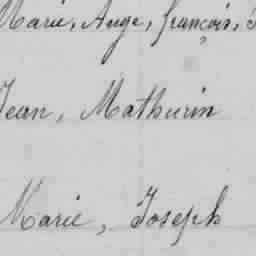 Marie, Ange, françois,
Jean, Mathurin
Marie, Joseph